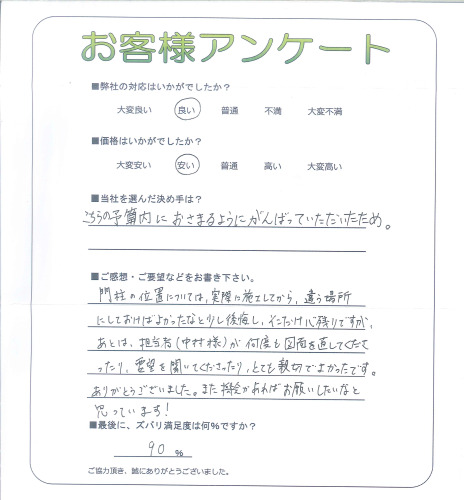 お客様アンケート
■弊社の対応はいかがでしたか？
大変良い 良い 普通 不満 大変不満
■価格はいかがでしたか？
大変安い 安い 普通 高い 大変高い
■当社を選んだ決め手は？
こちらの予算内におさまるようにがんばっていただいたため。
■ご感想・ご要望などをお書き下さい。
門柱の位置については，実際に施工してから，違う場所
にしておけばよかったなと少し後悔し，そこだけ心残りですが，
あとは，担当者（中村様）が何度も図面を直してくださ
ったり，要望を聞いてくださったり，とても親切でよかったです。
ありがとうございました。また機会があればお願いしたいなと
思っています！
■最後に、ズバリ満足度は何％ですか？
90 %
ご協力頂き、誠にありがとうございました。